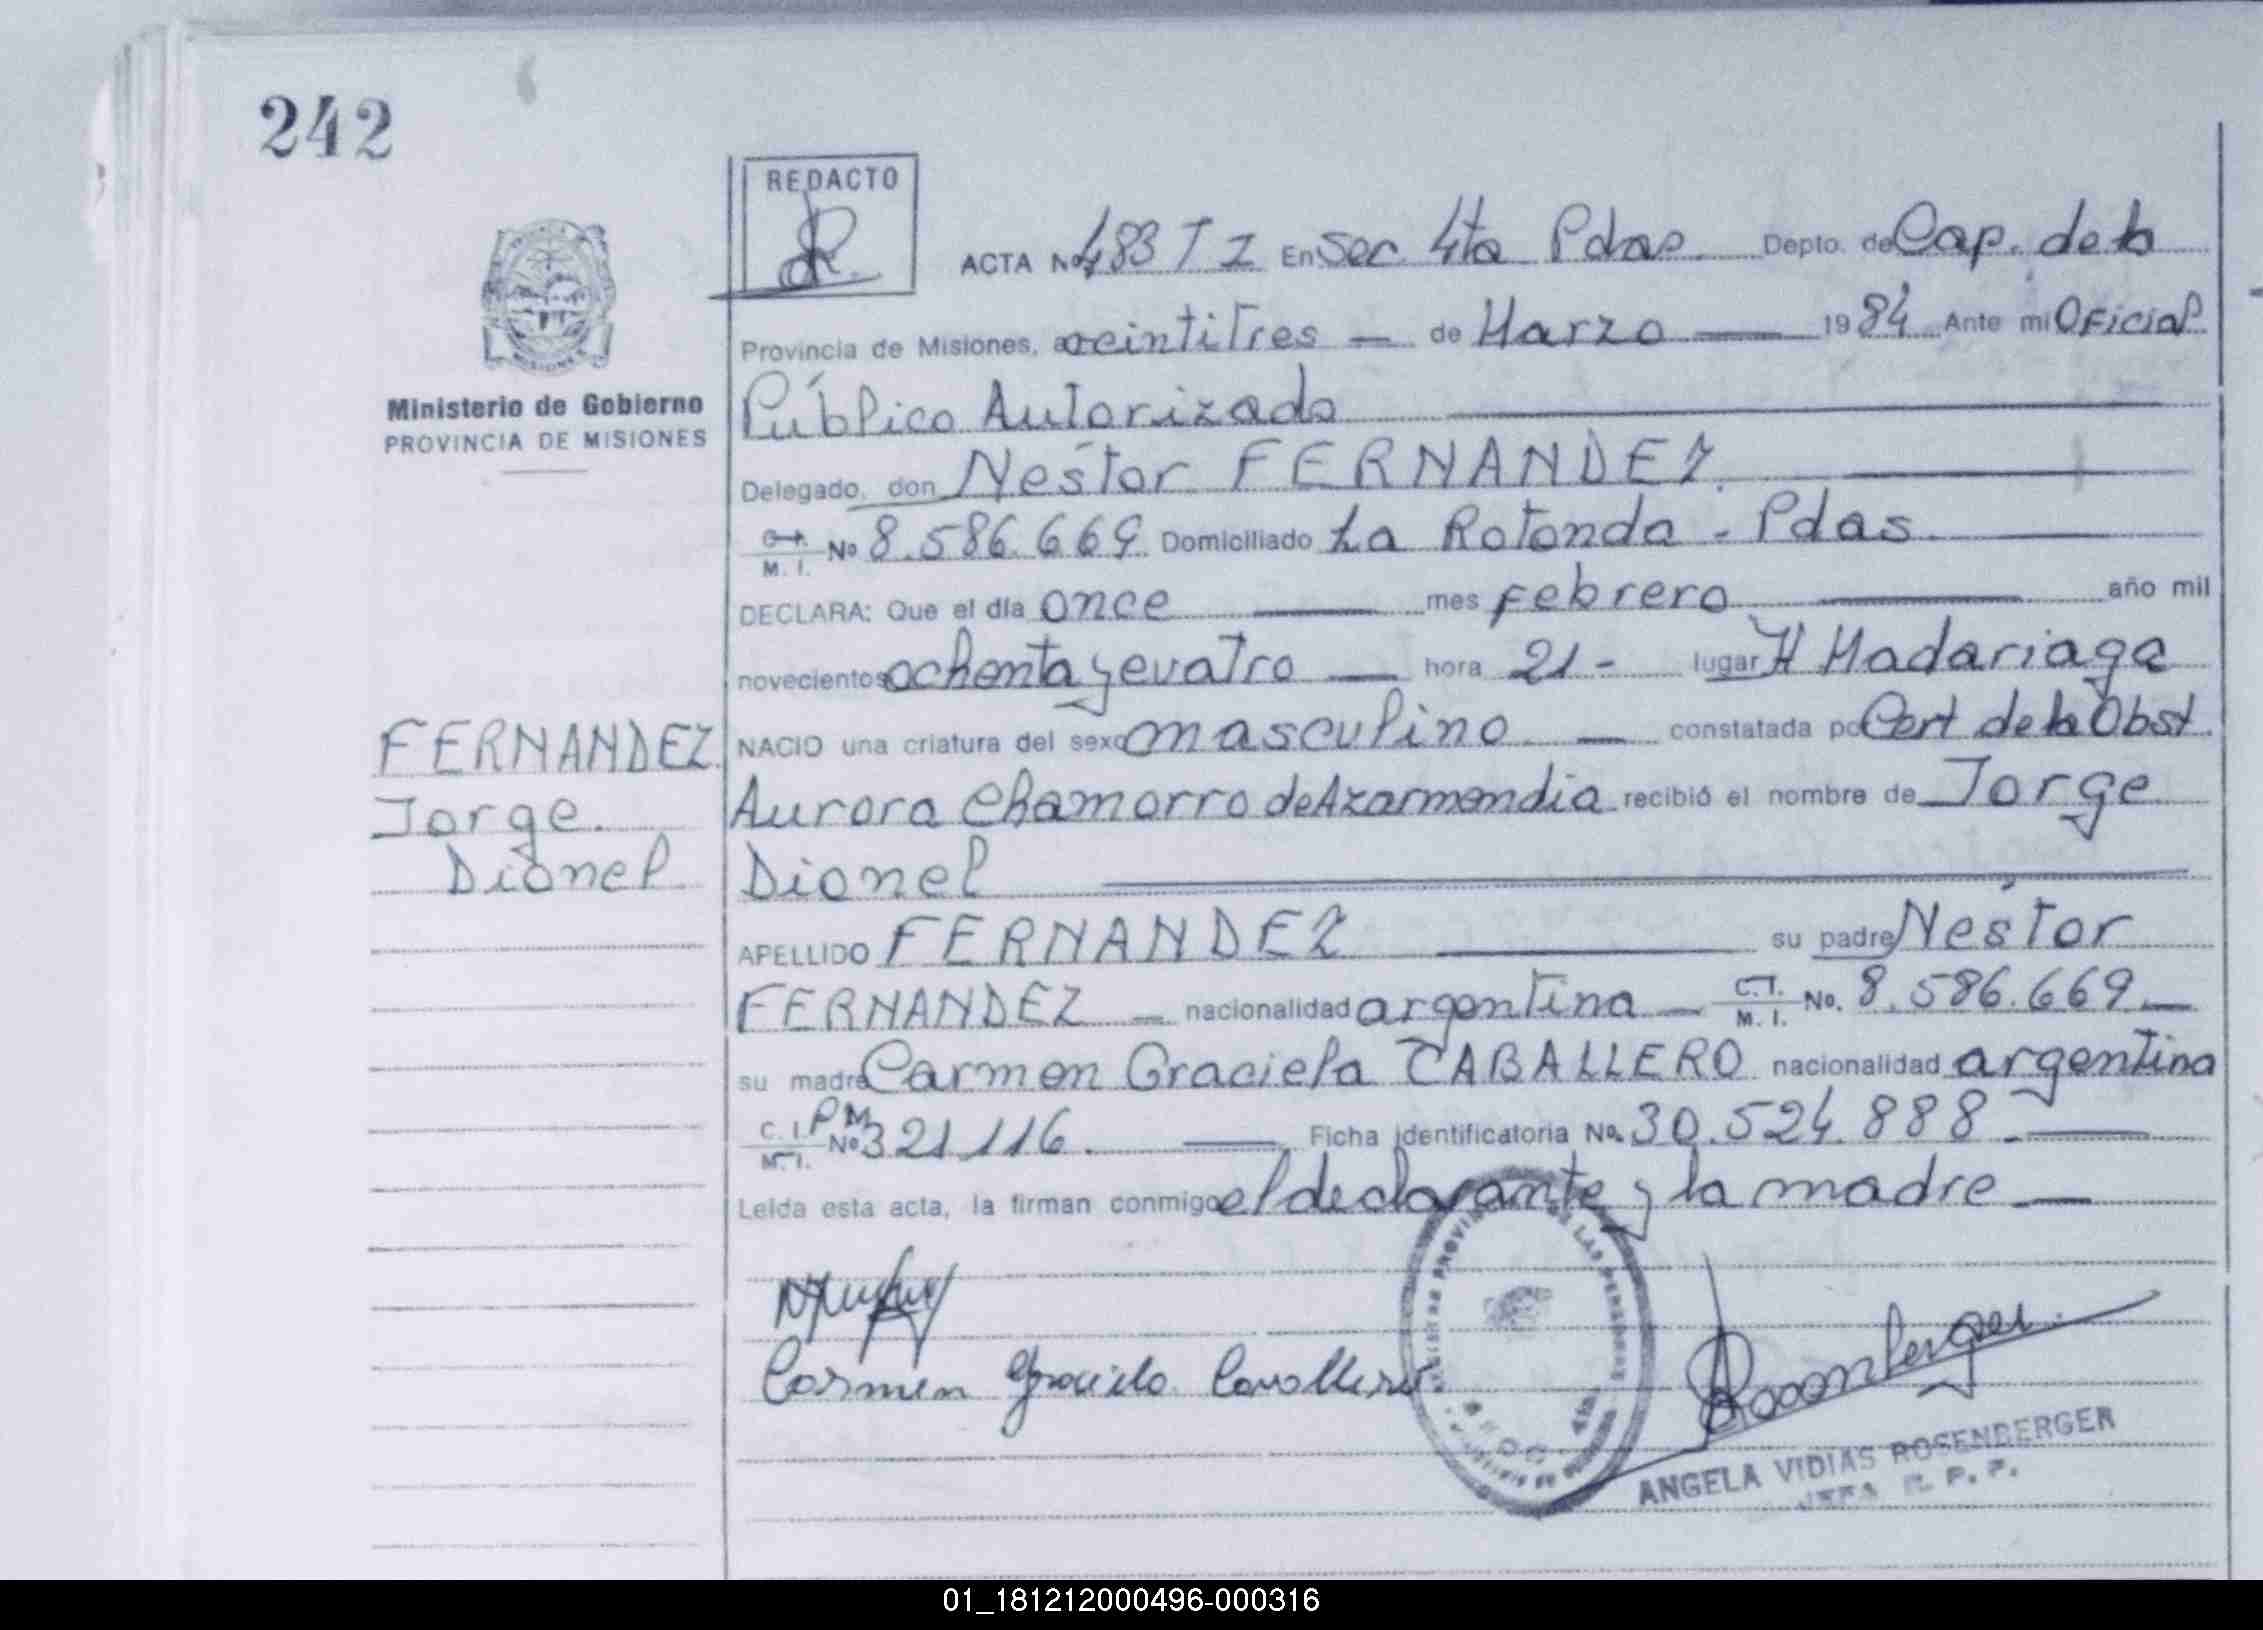 242
REDACTO
ACTA No 483 T I En Sec. 4ta Pdas. Depto. de Cap. de la
Provincia de Misiones, a veintitres — de Marzo — 1984 Ante mi Oficial
Ministerio de Gobierno
PROVINCIA DE MISIONES
Público Autorizado
Delegado, don Nestor FERNANDEZ.
M. I. No 8.586.669 Domiciliado La Rotonda - Pdas.
DECLARA: Que el día once — mes Febrero — año mil
novecientos ochenta y cuatro — hora 21 - lugar H Madariaga
FERNANDEZ
Jorge.
Dionel
NACIO una criatura del sexo masculino — constatada po Cert de la Obst.
Aurora Chamorro de Azarmendia recibió el nombre de Jorge
Dionel
APELLIDO FERNANDEZ — su padre Nestor
FERNANDEZ — nacionalidad argentina — C.I. M. I. No. 8.586.669 —
su madre Carmen Graciela CABALLERO nacionalidad argentina
C. I. PM M. I. No 321.116. — Ficha identificatoria No. 30.524.888 . —
Leida esta acta, la firman conmigo el declarante y la madre —
Carmen Graciela Cavallero
Rosenberger.
ANGELA VIDIAS ROSENBERGER
JEFA R. P. P.
01_181212000496-000316